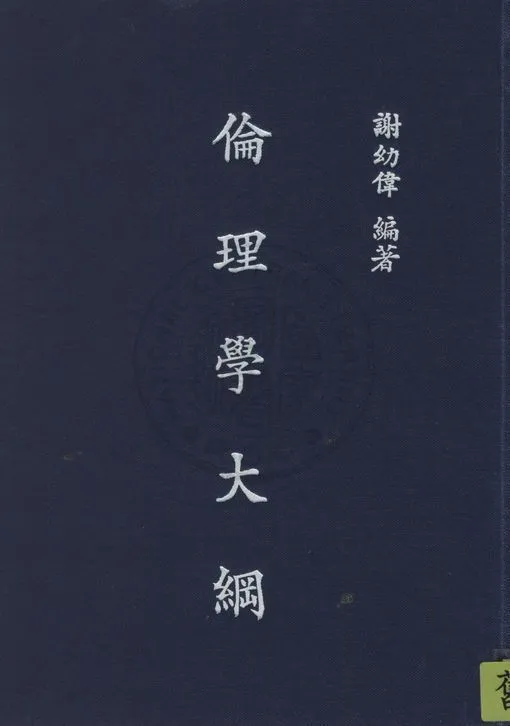 謝幼偉 編著
倫理學大綱
舊